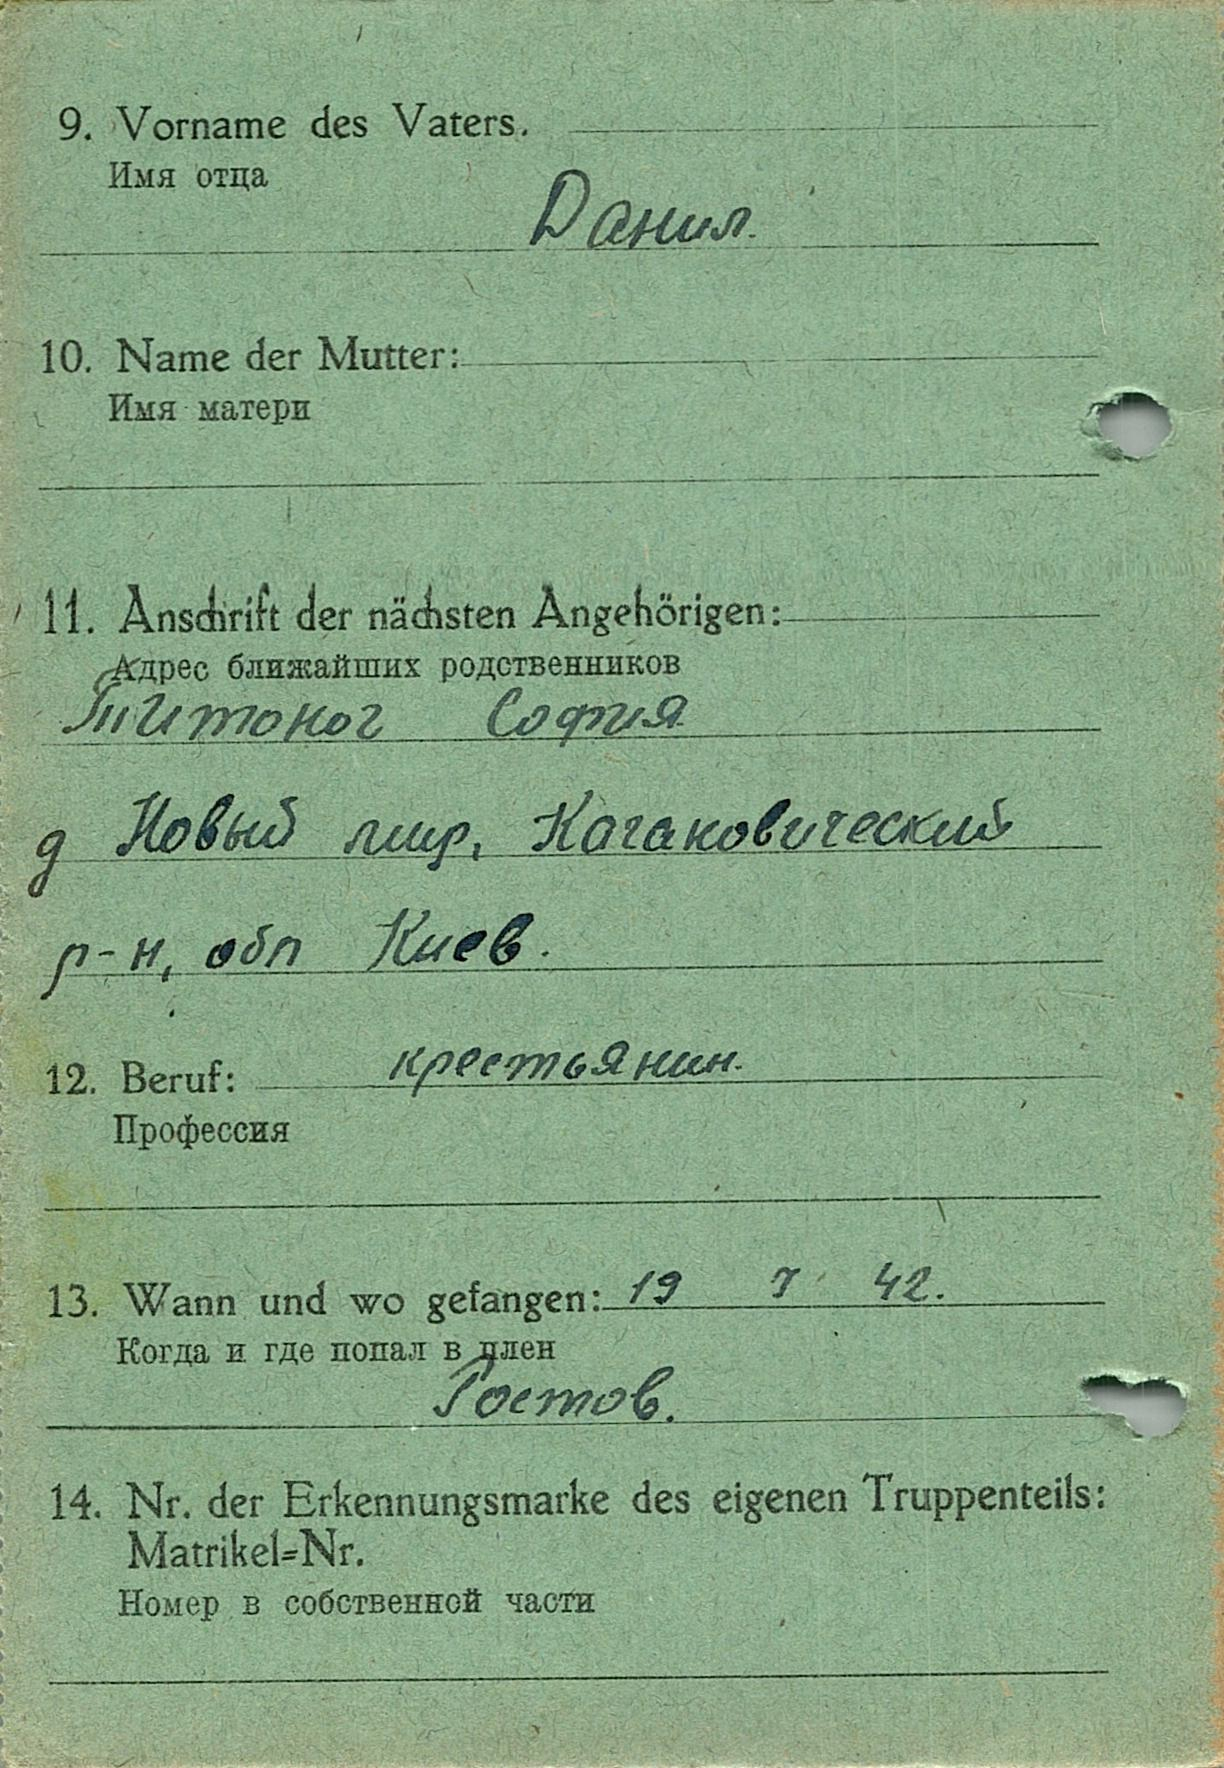 9. Vorname des Vaters.
Имя отца
Данил.
10. Name der Mutter:
Имя матери
11. Anschrift der nächsten Angehörigen:
Адрес ближайших родственников
Титоног София
д Новый мир, Кагановический
р-н, обл Киев.
12. Beruf: крестьянин.
Профессия
13. Wann und wo gefangen: 19 7 42.
Когда и где попал в плен
Ростов.
14. Nr. der Erkennungsmarke des eigenen Truppenteils:
Matrikel=Nr.
Номер в собственной части